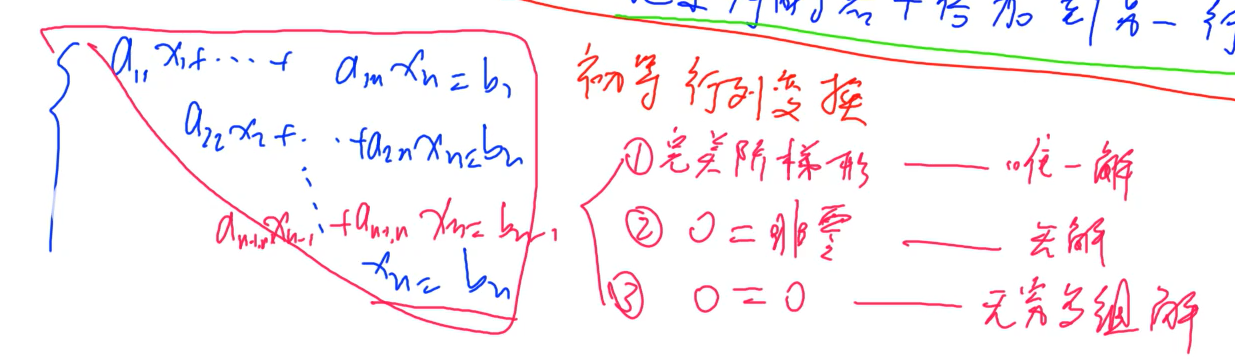 a₁₁x₁+···+ a₁ₙxₙ=b₁
a₂₂x₂+···+a₂ₙxₙ=bₙ
aₙ₋₁,ₙxₙ₋₁+aₙ₋₁,ₙxₙ=bₙ₋₁
xₙ=bₙ
加到另一行
初等行列变换
①完美阶梯形 —— 唯一解
② 0=非零 —— 无解
③ 0=0 —— 无穷多组解